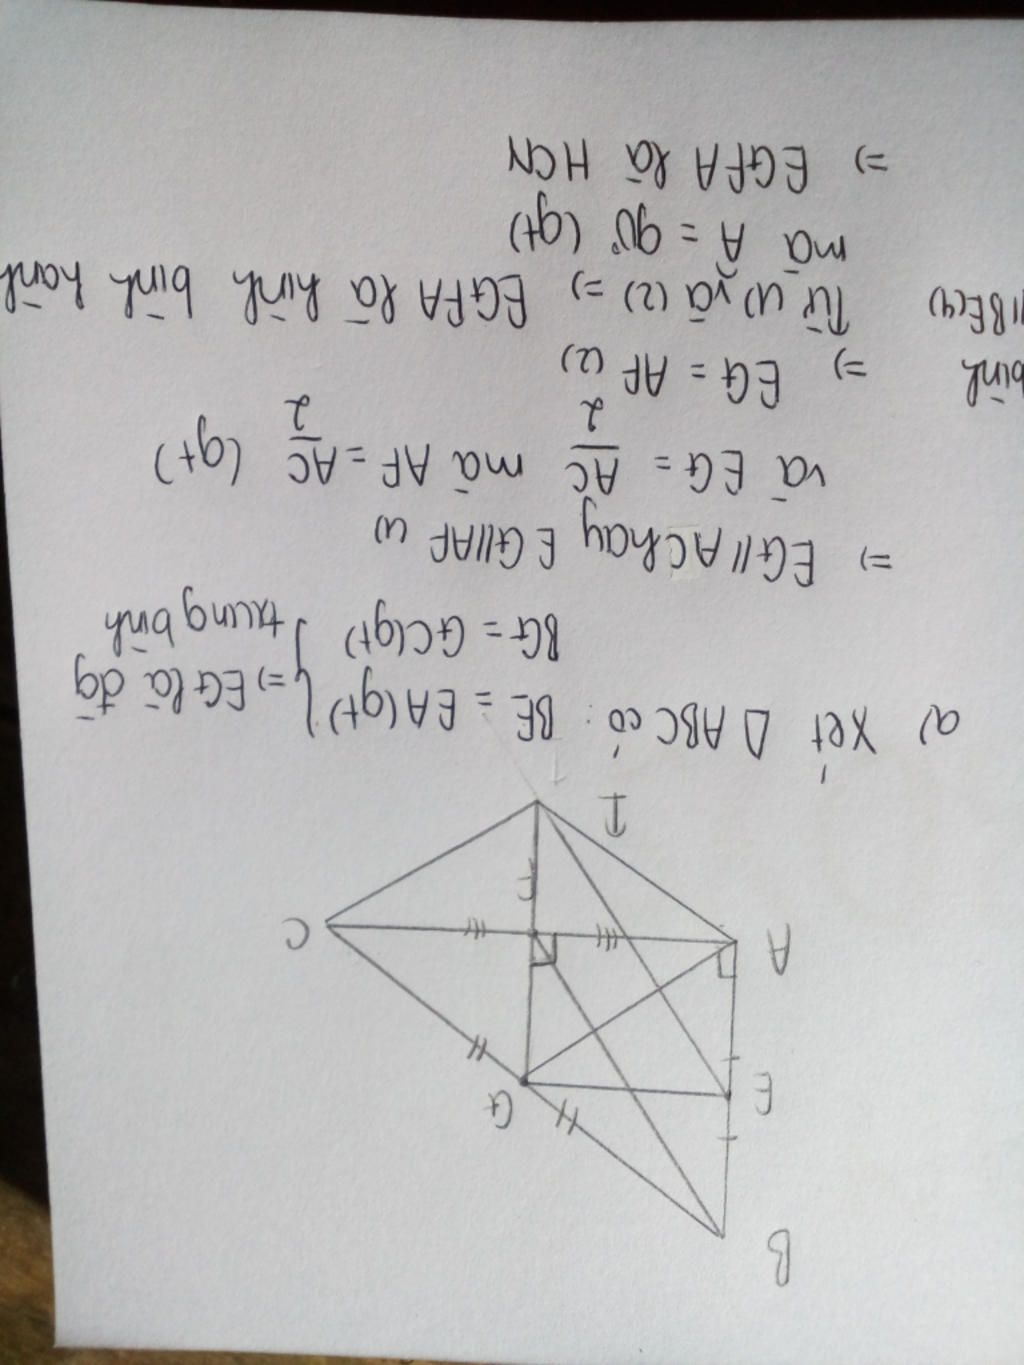 B
E
G
A
C
F
I
a) Xét Δ ABC có: BE = EA (gt) } => EG là đg
BG = GC (gt) } trung bình
=> EG // AC hay EG // AF (1)
và EG = AC/2 mà AF = AC/2 (gt)
=> EG = AF (2)
bình
Từ (1) và (2) => EGFA là hình bình hành
// BE (4)
mà Â = 90° (gt)
=> EGFA là HCN